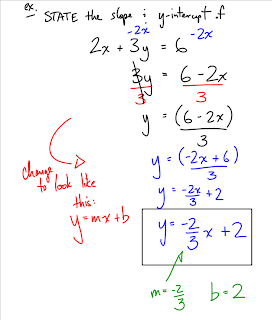 ex. STATE the slope & y-intercept of
-2x -2x
2x + 3y = 6
3y/3 = (6 - 2x)/3
y = (6 - 2x)/3
change to look like this:
y = mx + b
y = (-2x + 6)/3
y = -2x/3 + 2
y = -2/3 x + 2
m = -2/3 b = 2